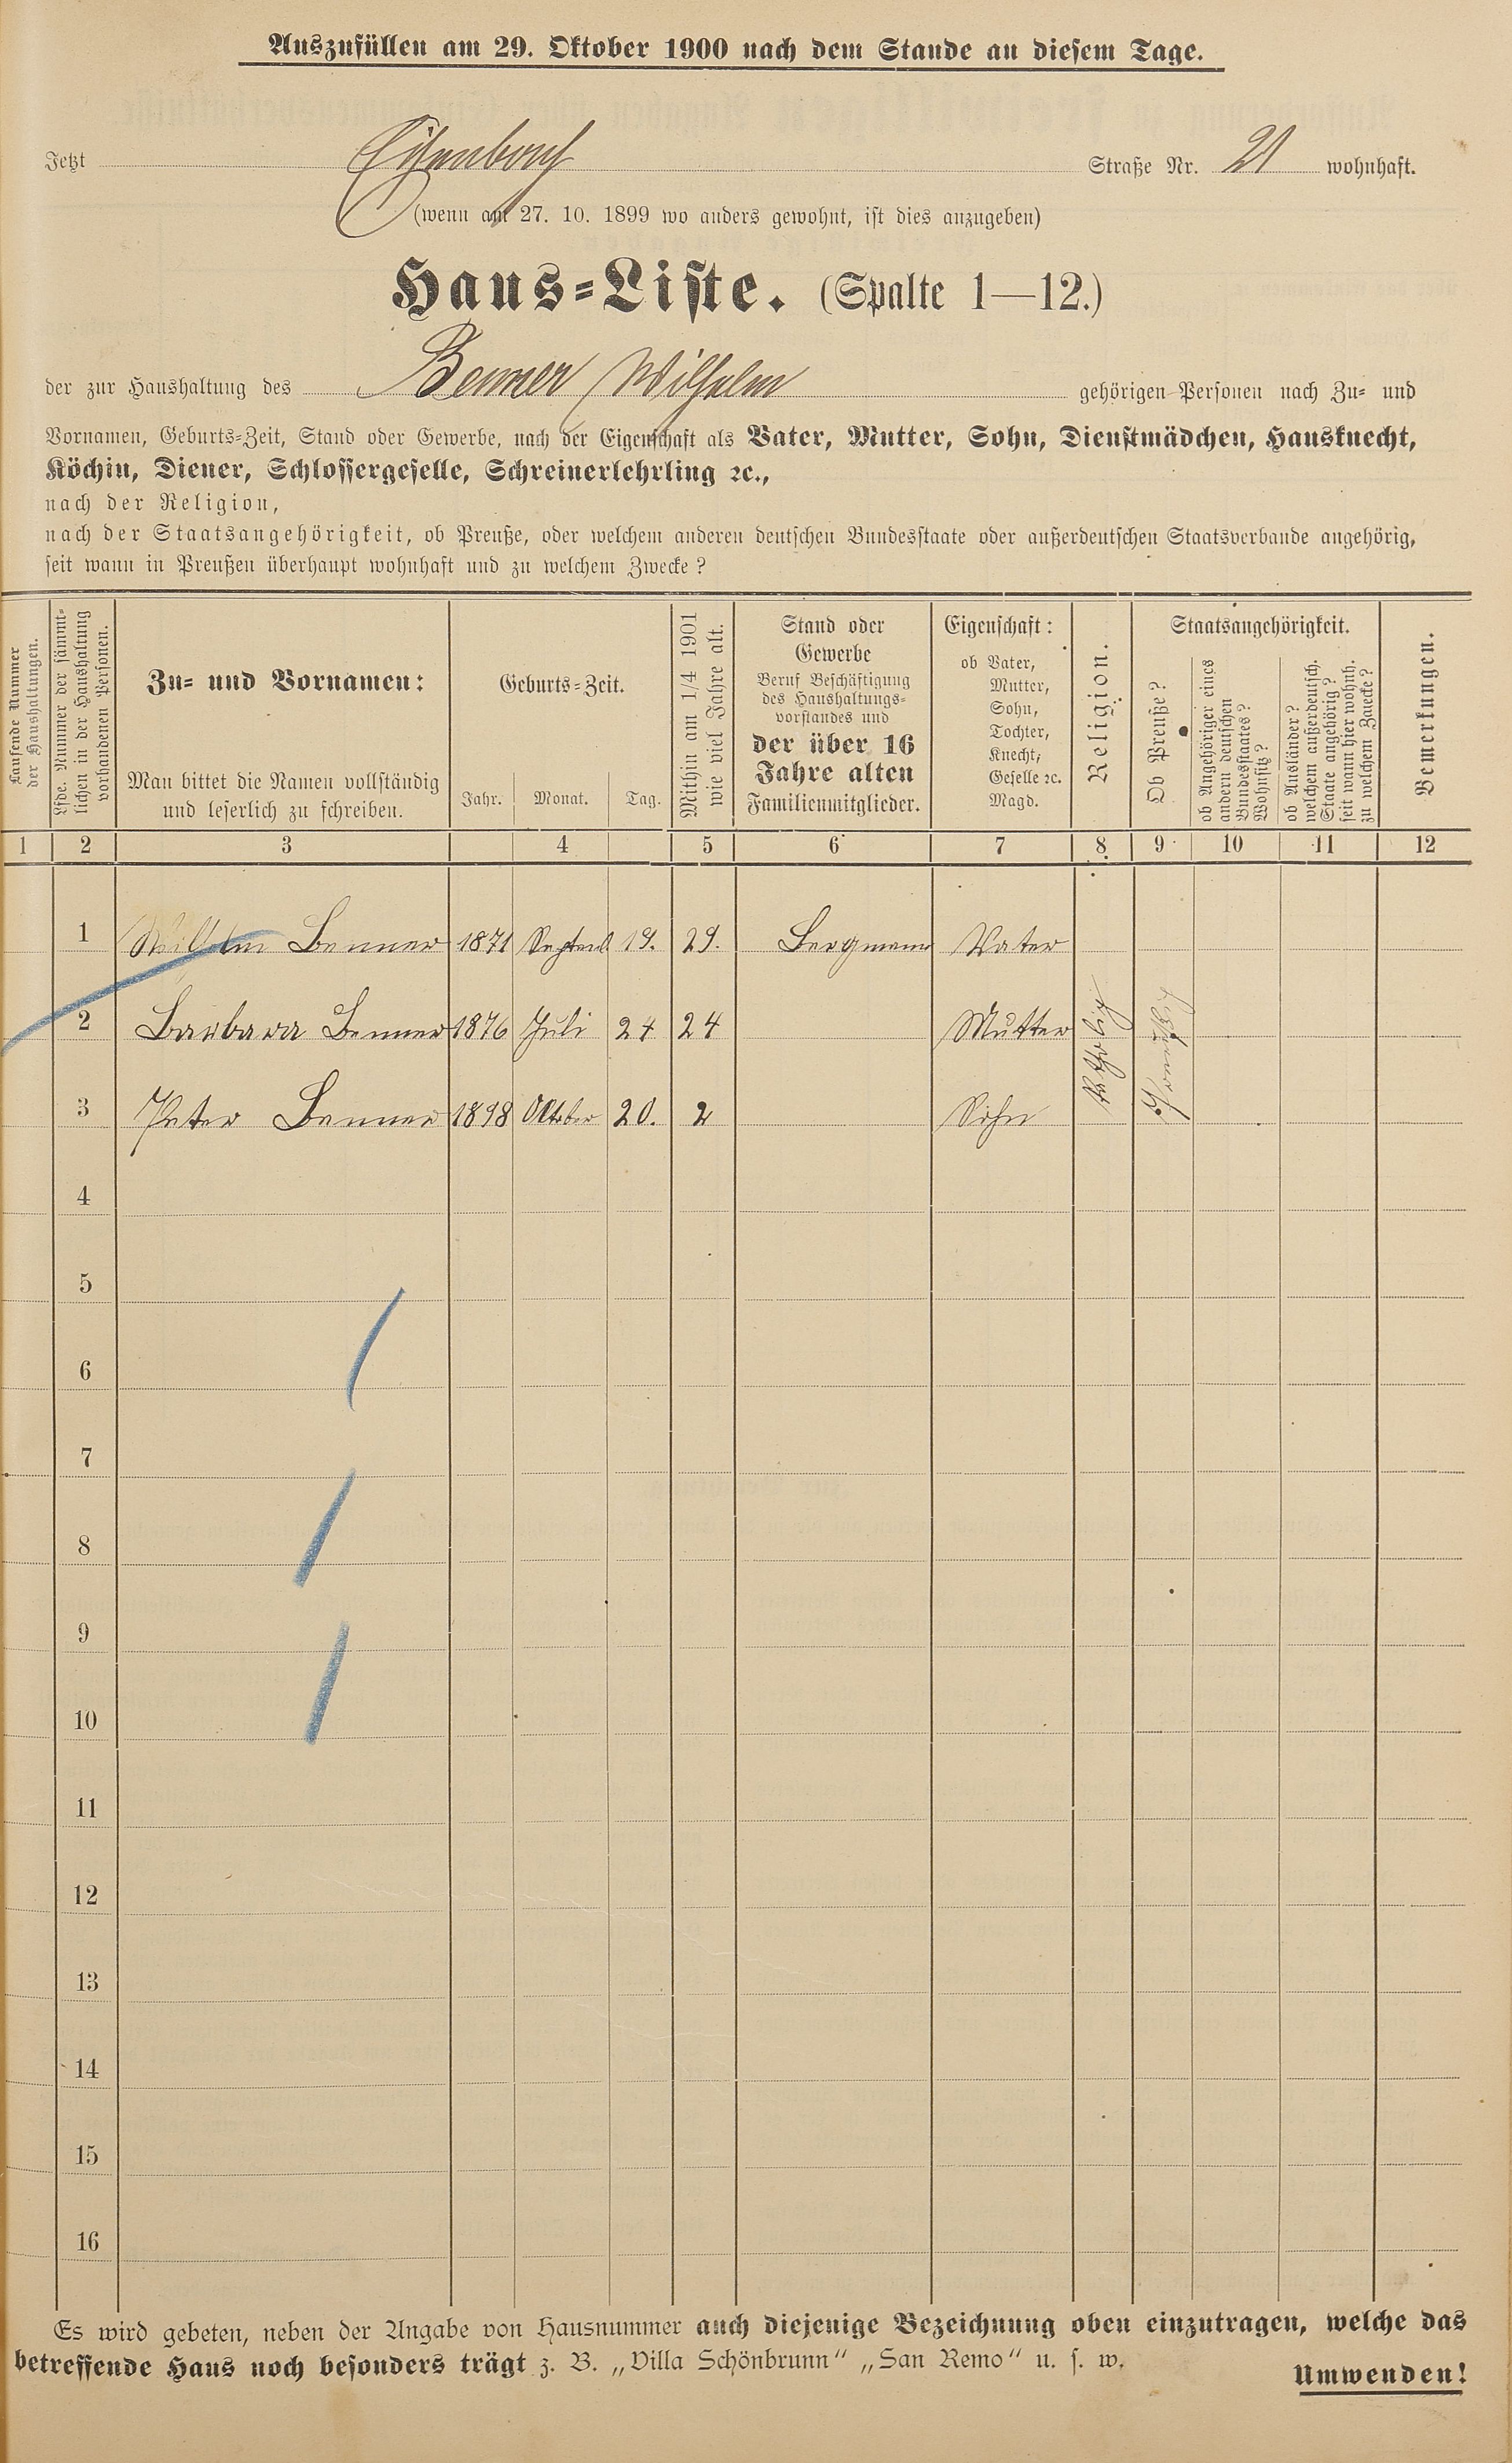 Auszufüllen am 29. Oktober 1900 nach dem Stande an diesem Tage.
Jetzt Straße Nr. 21 wohnhaft.
(wenn am 27. 10. 1899 wo anders gewohnt, ist dies anzugeben)
Haus-Liste. (Spalte 1—12.)
der zur Haushaltung des Benner Wilhelm gehörigen Personen nach Zu- und
Vornamen, Geburts-Zeit, Stand oder Gewerbe, nach der Eigenschaft als Vater, Mutter, Sohn, Dienstmädchen, Hausknecht,
Köchin, Diener, Schlossergeselle, Schreinerlehrling ꝛc.,
nach der Religion,
nach der Staatsangehörigkeit, ob Preuße, oder welchem anderen deutschen Bundesstaate oder außerdeutschen Staatsverbande angehörig,
seit wann in Preußen überhaupt wohnhaft und zu welchem Zwecke?
Laufende Nummer
der Haushaltungen.
Lfde. Nummer der sämmt-
lichen in der Haushaltung
vorhandenen Personen.
Zu- und Vornamen:
Man bittet die Namen vollständig
und leserlich zu schreiben.
Geburts-Zeit.
Jahr. Monat. Tag.
Mithin am 1/4 1901
wie viel Jahre alt.
Stand oder
Gewerbe
Beruf Beschäftigung
des Haushaltungs-
vorstandes und
der über 16
Jahre alten
Familienmitglieder.
Eigenschaft:
ob Vater,
Mutter,
Sohn,
Tochter,
Knecht,
Geselle ꝛc.
Magd.
Religion.
Staatsangehörigkeit.
Ob Preuße?
ob Angehöriger eines
andern deutschen
Bundesstaates?
Wohnsitz?
ob Ausländer?
welchem außerdeutsch.
Staate angehörig?
seit wann hier wohnh.
zu welchem Zwecke?
Bemerkungen.
1 2 3 4 5 6 7 8 9 10 11 12
1 Wilhelm Benner 1871 Septemb 19. 29. Bergmann Vater
2 Barbara Benner 1876 Juli 24 24 Mutter
3 Peter Benner 1898 Oktober 20. 2 Sohn
Katholig
4
5
6
7
8
9
10
11
12
13
14
15
16
Es wird gebeten, neben der Angabe von Hausnummer auch diejenige Bezeichnung oben einzutragen, welche das
betreffende Haus noch besonders trägt z. B. „Villa Schönbrunn“ „San Remo“ u. s. w.
Umwenden!